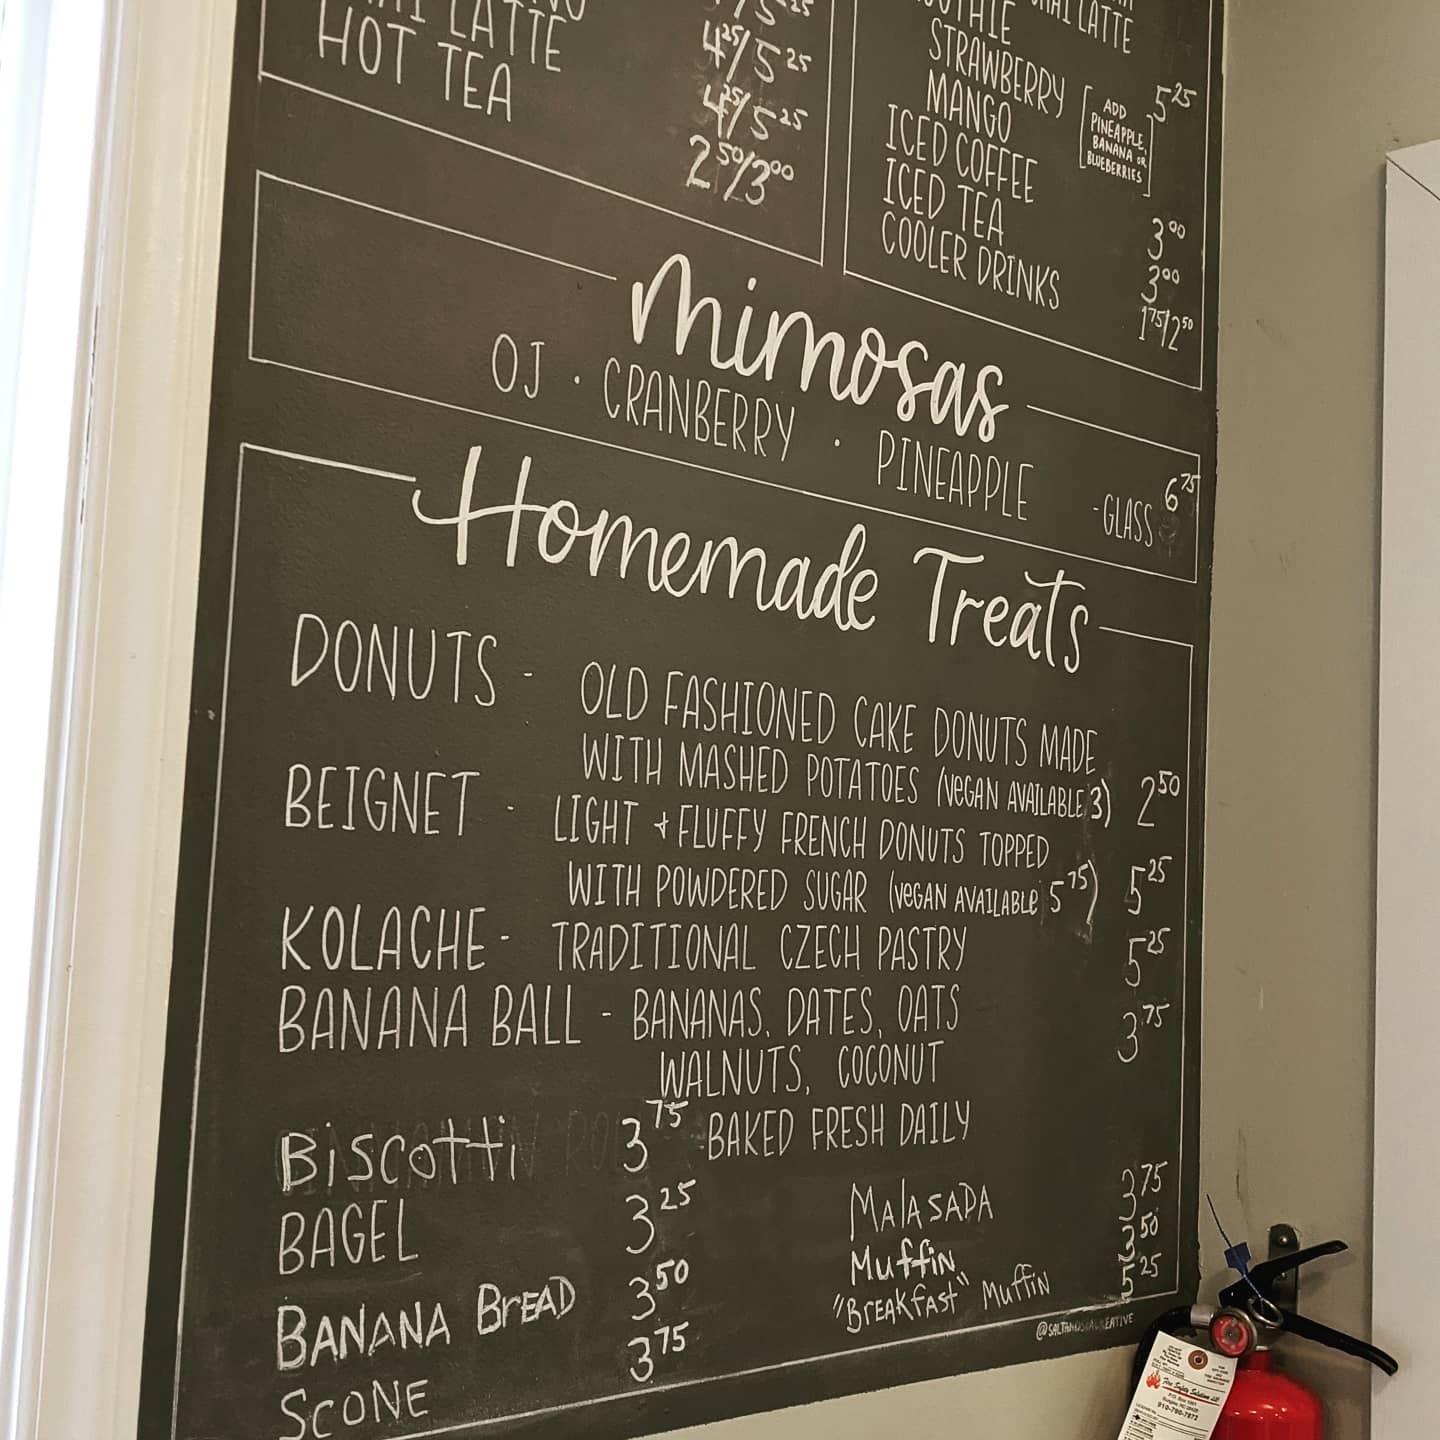 LATTE
HOT TEA
4²⁵/5²⁵
4²⁵/5²⁵
2⁵⁰/3⁰⁰
LATTE
STRAWBERRY
MANGO
[ADD
PINEAPPLE,
BANANA OR
BLUEBERRIES]
5²⁵
ICED COFFEE 3⁰⁰
ICED TEA 3⁰⁰
COOLER DRINKS 1⁷⁵/2⁵⁰
mimosas
OJ · CRANBERRY · PINEAPPLE -GLASS 6⁷⁵
Homemade Treats
DONUTS - OLD FASHIONED CAKE DONUTS MADE
WITH MASHED POTATOES (VEGAN AVAILABLE 3) 2⁵⁰
BEIGNET - LIGHT & FLUFFY FRENCH DONUTS TOPPED
WITH POWDERED SUGAR (VEGAN AVAILABLE 5⁷⁵) 5²⁵
KOLACHE - TRADITIONAL CZECH PASTRY 5²⁵
BANANA BALL - BANANAS, DATES, OATS 3⁷⁵
WALNUTS, COCONUT
-BAKED FRESH DAILY
BiSCOTTi 3⁷⁵
BAGEL 3²⁵
BANANA BREAD 3⁵⁰
SCONE 3⁷⁵
MALASADA 3⁷⁵
Muffin 3⁵⁰
"BREAKfAST" Muffin 5²⁵
Fire Safety Solutions
910-790-7872